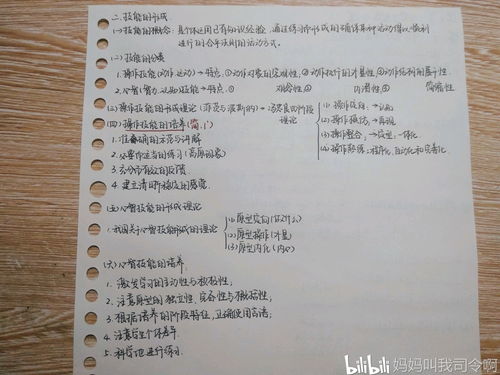 二、技能的形成
(一)技能的概念：个体运用已有的知识经验，通过练习而形成的确保某种活动得以顺利
进行的合乎法则的活动方式。
(二)技能的分类
1.操作技能(动作、运动)→特点：①动作对象的客观性②动作执行的外显性③动作结构的展开性
2.心智(智力、认知)技能→特点：① 观念性② 内潜性③ 简缩性
(三)操作技能的形成理论(
四阶段
理论
(1)操作定向→
(2)操作模仿→再现
(3)操作整合→ 一体化
(4)操作熟练：程序化、自动化和完善化
(四)操作技能的培养(简、
1.准确的示范与讲解
2.必要而适当的练习(高原现象)
3.充分而有效的反馈
4.建立清晰稳定的
(五)心智技能的形成理论
1.我国关于心智技能形成的理论
(1)原型定向(
(2)原型操作(外显)
(3)原型内化(内心)
(六)心智技能的培养
1.激发学习的主动性与积极性；
2.注意原型的独立性、完备性与概括性；
3.根据培养的阶段特征，正确使用言语；
4.注意学生个体差异
5.科学地进行练习
bilibili 妈妈叫我司令啊